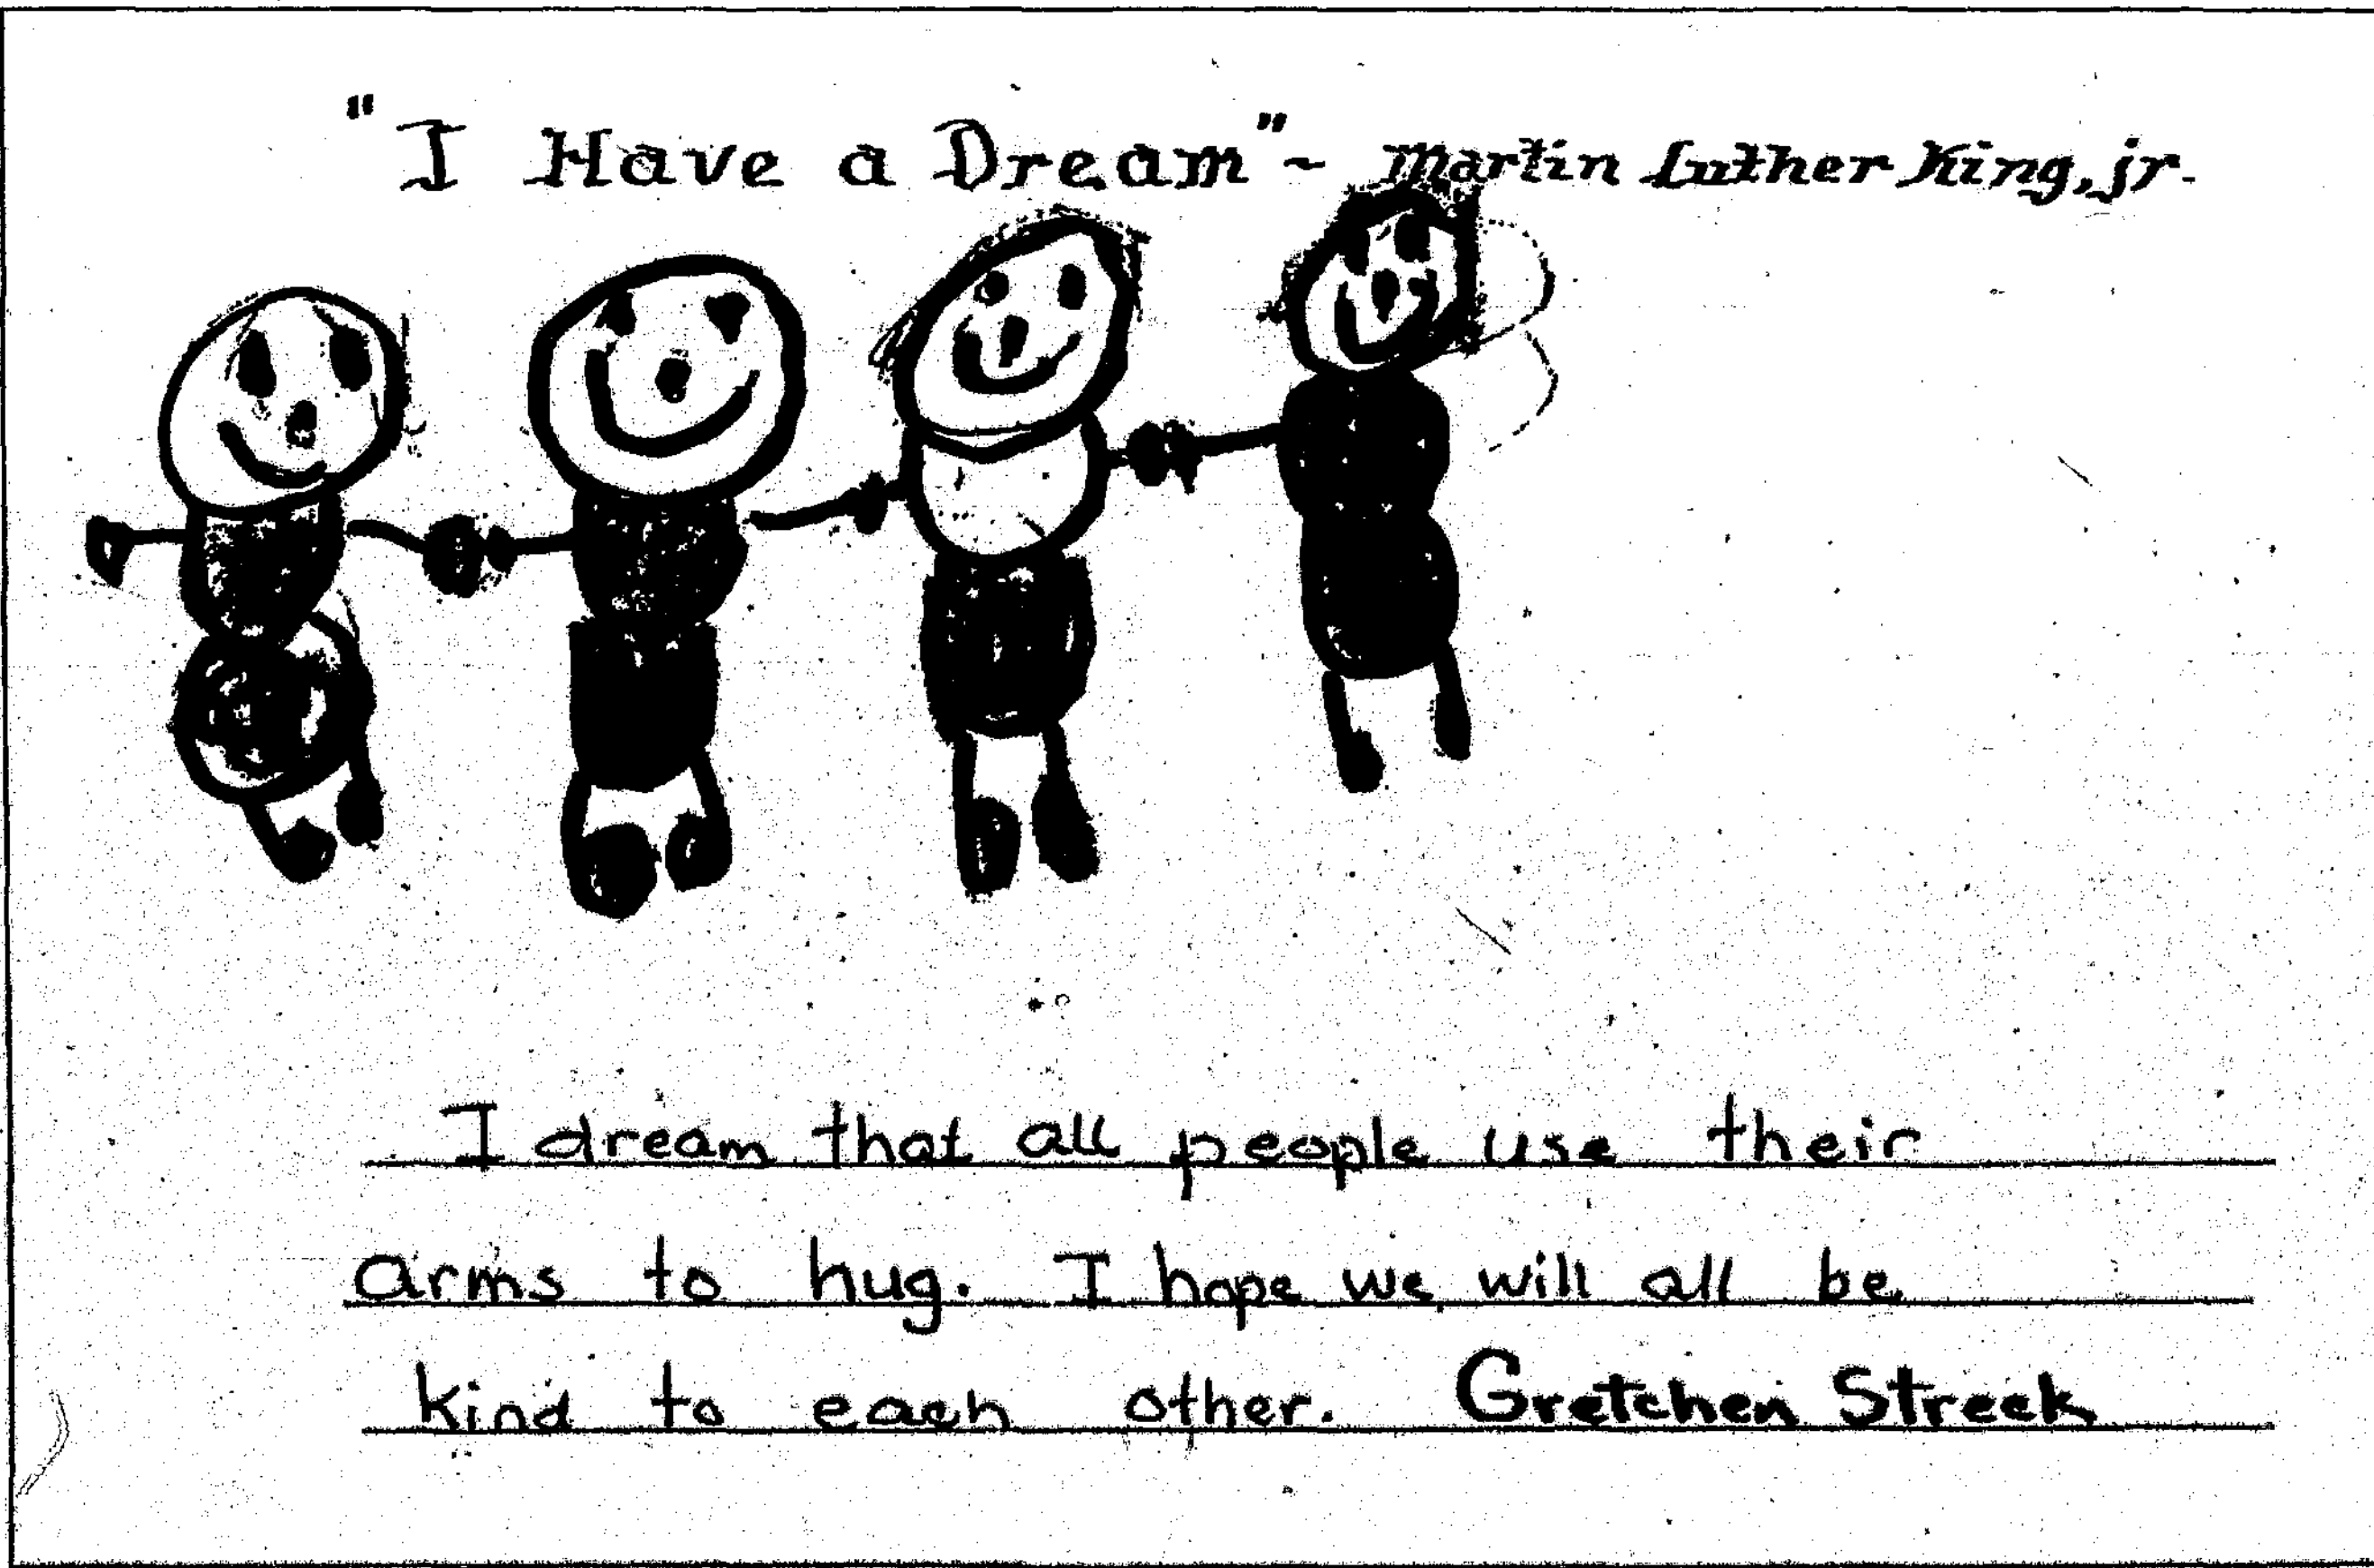 "I Have a Dream" ~ Martin Luther King, jr.
I dream that all people use their
arms to hug. I hope we will all be
kind to each other. Gretchen Streck